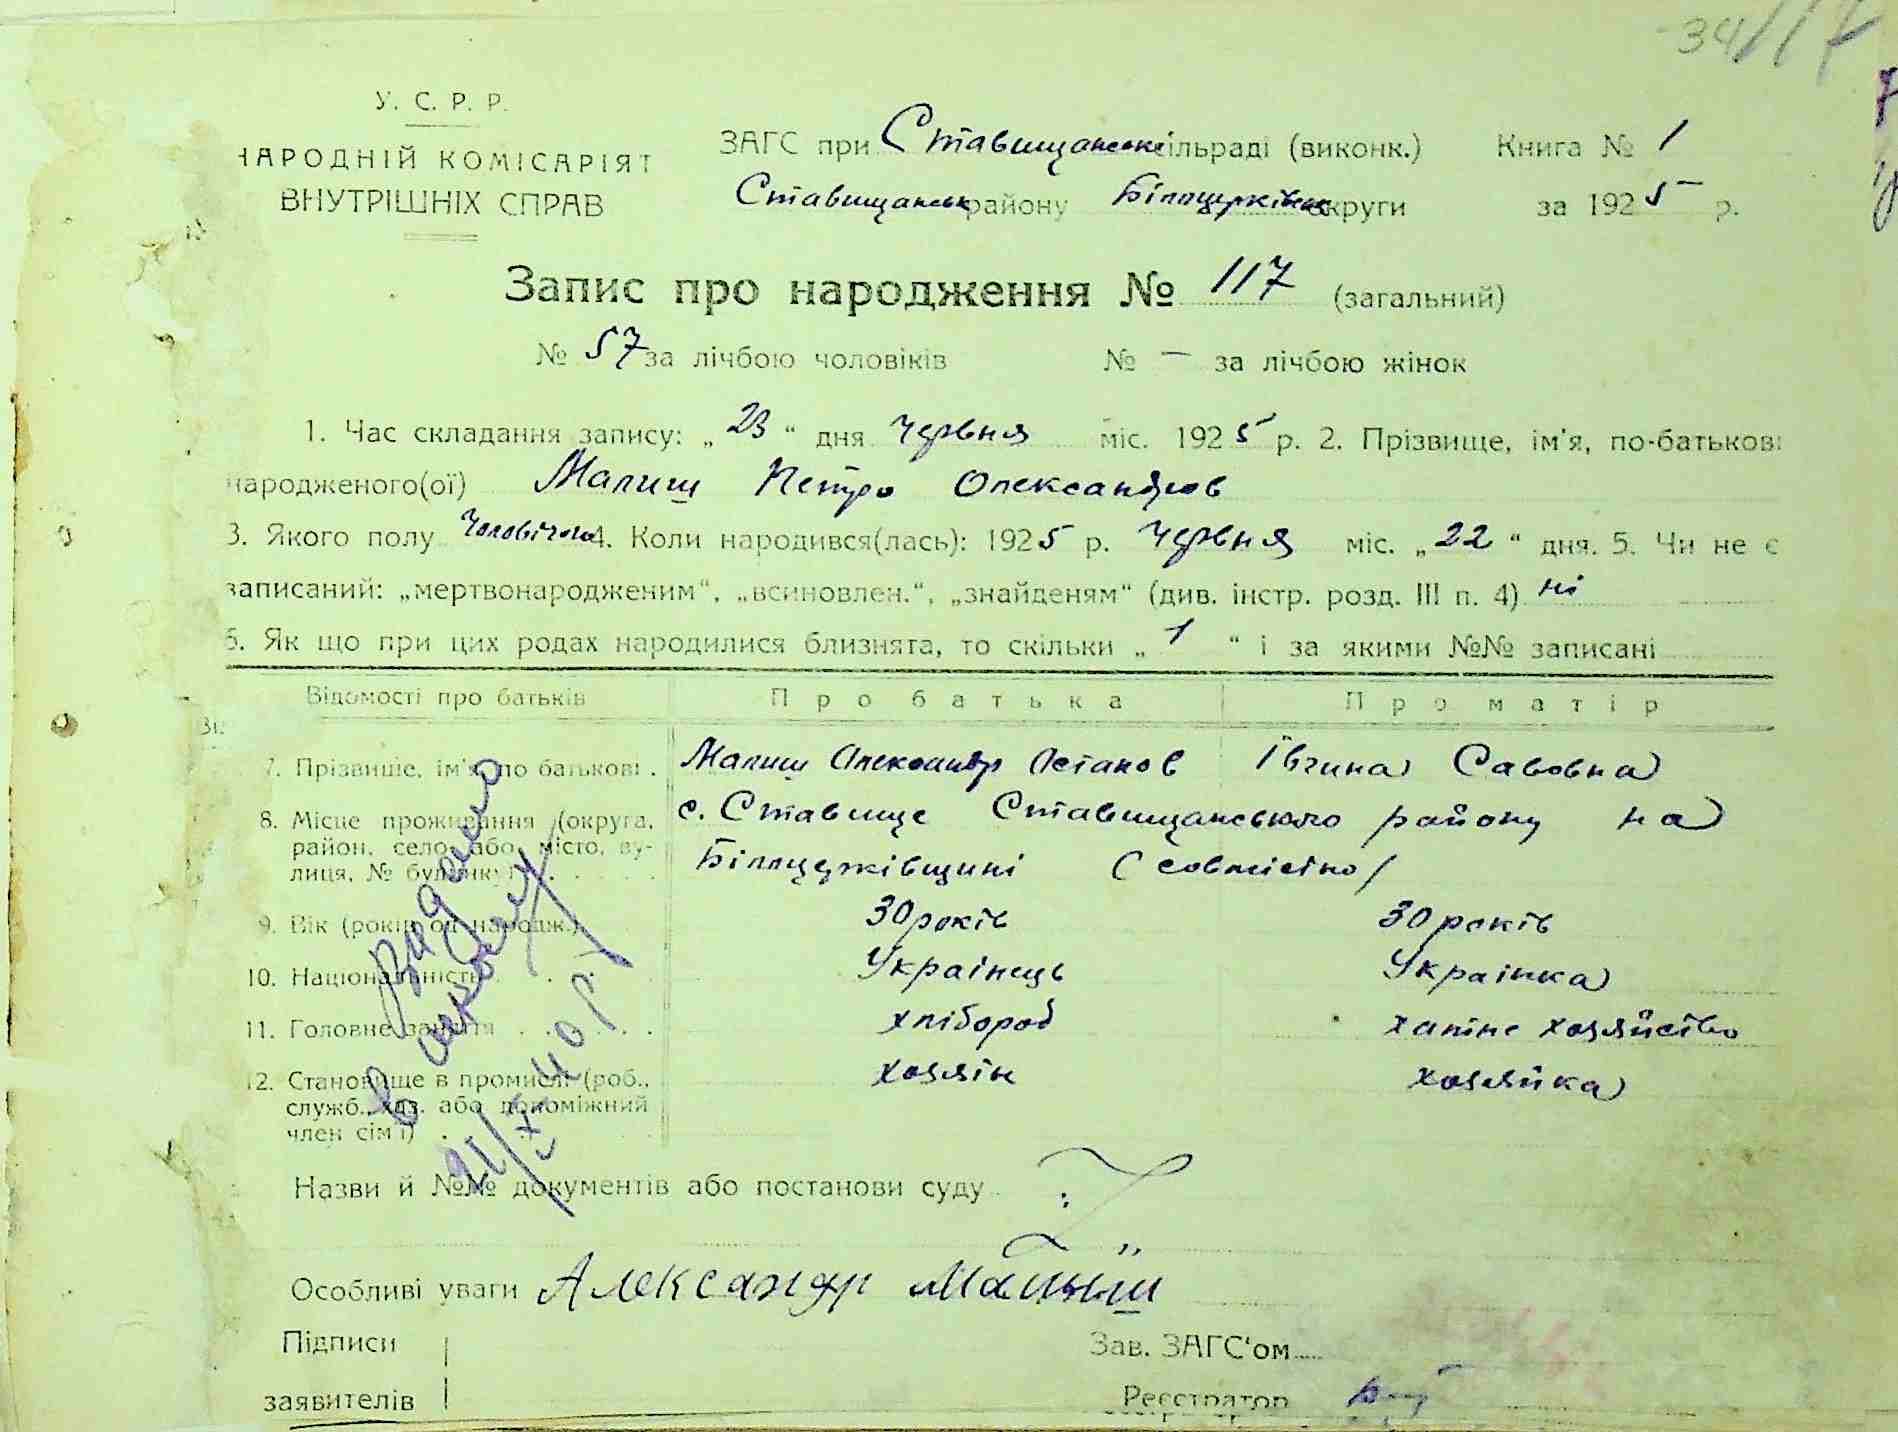 34/17
У. С. Р. Р.
НАРОДНІЙ КОМІСАРІЯТ
ВНУТРІШНІХ СПРАВ
ЗАГС при Ставищанськ сільраді (виконк.) Книга № 1
Ставищанськ району Білоцерківськ округи за 1925 р.
Запис про народження № 117 (загальний)
№ 57 за лічбою чоловіків № — за лічбою жінок
1. Час складання запису: „23“ дня червня міс. 1925 р. 2. Прізвище, ім'я, по-батькові
народженого(ої) Малиш Петро Олександров
3. Якого полу Чоловічого 4. Коли народився(лась): 1925 р. червня міс. „22“ дня. 5. Чи не є
записаний: „мертвонародженим“, „всиновлен.“, „знайденям“ (див. інстр. розд. III п. 4) ні
6. Як що при цих родах народилися близнята, то скільки „1“ і за якими №№ записані
Відомості про батьків Про батька Про матір
7. Прізвище, ім'я, по батькові. Малиш Олександр Остапов Івгина Савовна
8. Місце проживання (округа, район, село або місто, вулиця, № будинку) с. Ставище Ставищанського району на
Білоцерківщині (совмістно)
9. Вік (років од народж.) 30 років 30 років
10. Національність Українець Українка
11. Головне заняття хлібороб хатне хозяйство
12. Становище в промислі (роб.,
служб., хаз. або допоміжний
член сім'ї) хозяін хозяйка
Видано
в школу
21/X-40 р.
Назви й №№ документів або постанови суду
Особливі уваги Александр Малыш
Підписи Зав. ЗАГС'ом
заявителів Реєстратор